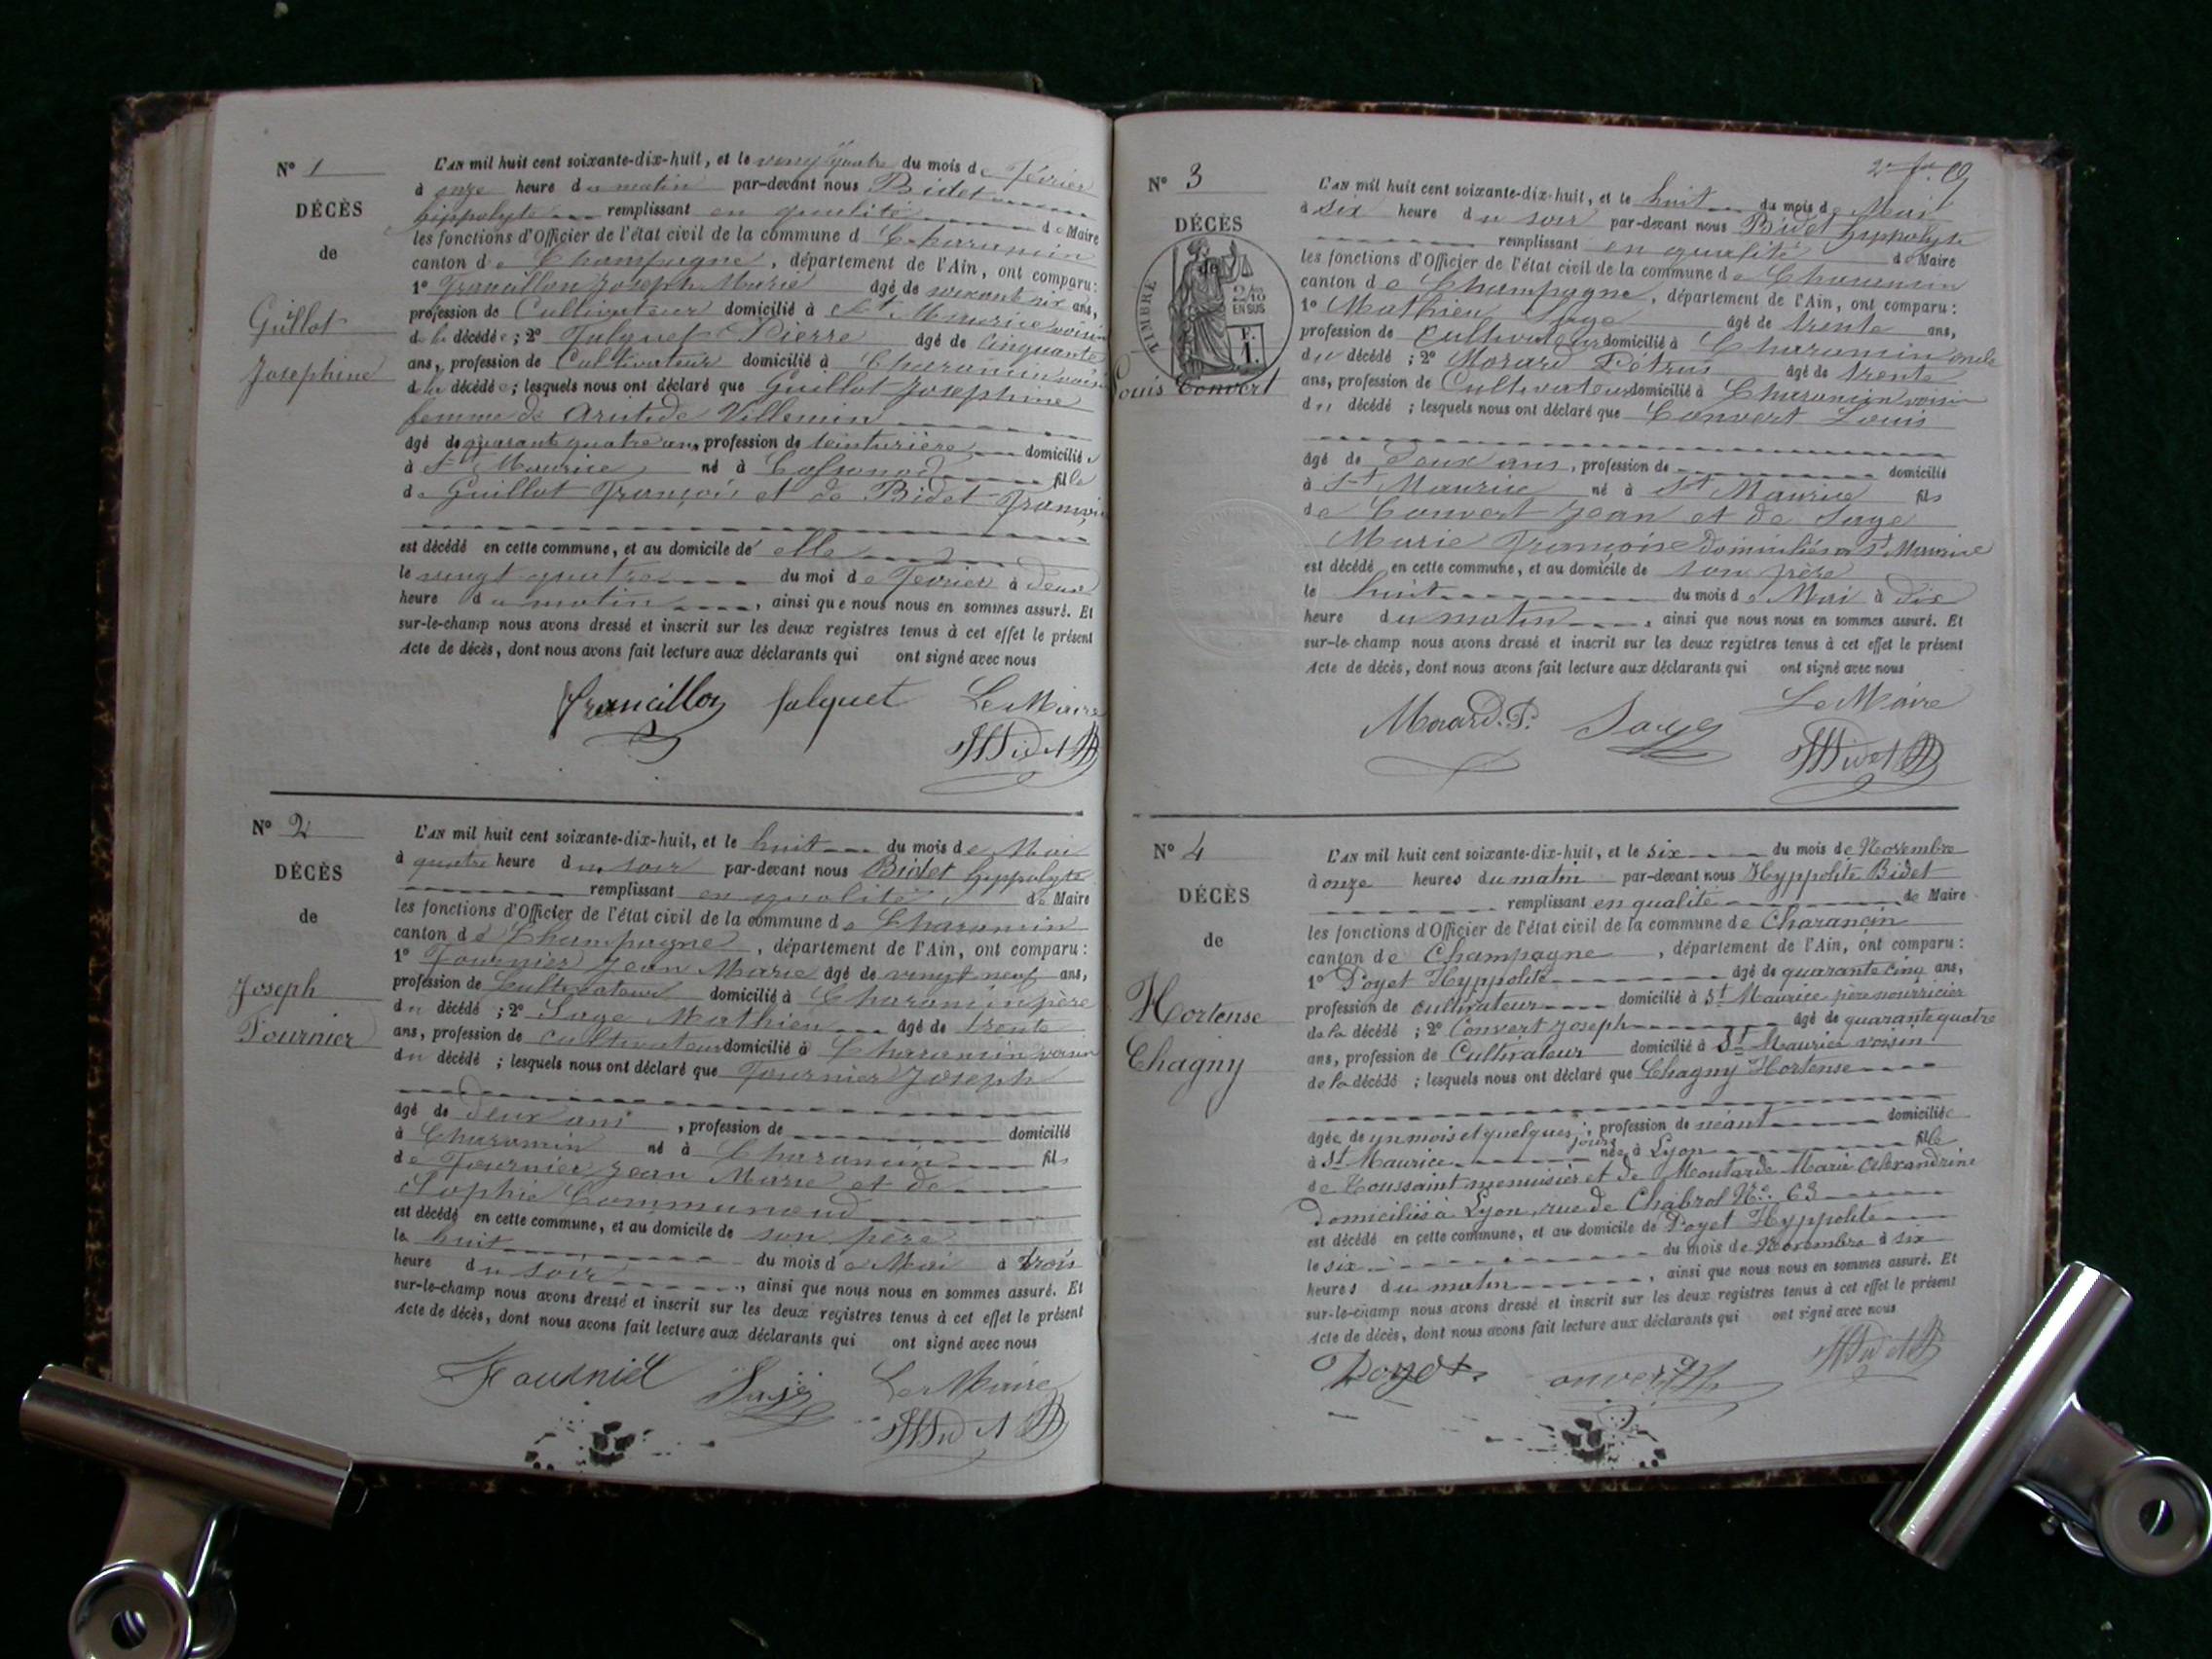 N° 1
DÉCÈS
de
Guillot
Josephine
L'AN mil huit cent soixante-dix-huit, et le vingt quatre du mois de Février
à onze heure du matin par-devant nous Bidet
hippolyte remplissant en qualité de Maire
les fonctions d'Officier de l'état civil de la commune d Charancin
canton de Champagne, département de l'Ain, ont comparu:
1° Francillon Joseph Marie âgé de soixante six ans,
profession de Cultivateur domicilié à St Maurice voisin
de la décédée; 2° Julquet Pierre âgé de cinquante
ans, profession de Cultivateur domicilié à Charancin voisin
de la décédée; lesquels nous ont déclaré que Guillot Josephine
femme de Aristide Villemin
âgé de quarante quatre ans, profession de teinturière domiciliée
à St Maurice né à fille
de Guillot François et de Bidet
est décédé en cette commune, et au domicile de elle
le vingt quatre du moi de Fevrier à deux
heure du matin, ainsi que nous nous en sommes assuré. Et
sur-le-champ nous avons dressé et inscrit sur les deux registres tenus à cet effet le présent
Acte de décès, dont nous avons fait lecture aux déclarants qui ont signé avec nous
Francillon Julquet Le Maire
HBidet
N° 2
DÉCÈS
de
Joseph
Fournier
L'AN mil huit cent soixante-dix-huit, et le huit du mois de Mai
à quatre heure du soir par-devant nous Bidet hyppolyte
remplissant en qualité de Maire
les fonctions d'Officier de l'état civil de la commune de Charancin
canton de Champagne, département de l'Ain, ont comparu:
1° Fournier Jean Marie âgé de vingt neuf ans,
profession de Cultivateur domicilié à Charancin père
du décédé; 2° Sage Mathieu âgé de trente
ans, profession de cultivateur domicilié à Charancin voisin
du décédé; lesquels nous ont déclaré que Fournier Joseph
âgé de deux ans, profession de domicilié
à Charancin né à Charancin fils
de Fournier Jean Marie et de
Sophie
est décédé en cette commune, et au domicile de son père
le huit du mois de Mai à trois
heure du soir, ainsi que nous nous en sommes assuré. Et
sur-le-champ nous avons dressé et inscrit sur les deux registres tenus à cet effet le présent
Acte de décès, dont nous avons fait lecture aux déclarants qui ont signé avec nous
Fournier Sage Le Maire
HBidet
N° 3
DÉCÈS
de
TIMBRE
2/10
EN SUS
F.
1.
Louis Convert
L'AN mil huit cent soixante-dix-huit, et le huit du mois de Mai
à six heure du soir par-devant nous Bidet hyppolyte
remplissant en qualité de Maire
les fonctions d'Officier de l'état civil de la commune de Charancin
canton de Champagne, département de l'Ain, ont comparu:
1° Mathieu Sage âgé de trente ans,
profession de Cultivateur domicilié à Charancin oncle
du décédé; 2° Morard Pétrus âgé de trente
ans, profession de Cultivateur domicilié à Charancin voisin
du décédé; lesquels nous ont déclaré que Convert Louis
âgé de deux ans, profession de domicilié
à St Maurice né à St Maurice fils
de Convert Jean et de Sage
Marie Françoise domiciliés à St Maurice
est décédé en cette commune, et au domicile de son père
le huit du mois de Mai à dix
heure du matin, ainsi que nous nous en sommes assuré. Et
sur-le-champ nous avons dressé et inscrit sur les deux registres tenus à cet effet le présent
Acte de décès, dont nous avons fait lecture aux déclarants qui ont signé avec nous
Morard.P. Sage Le Maire
HBidet
N° 4
DÉCÈS
de
Hortense
Chagny
L'AN mil huit cent soixante-dix-huit, et le six du mois de Novembre
à onze heures du matin par-devant nous Hyppolite Bidet
remplissant en qualité de Maire
les fonctions d'Officier de l'état civil de la commune de Charancin
canton de Champagne, département de l'Ain, ont comparu:
1° Poyet Hyppolite âgé de quarante cinq ans,
profession de cultivateur domicilié à St Maurice père nourricier
de la décédé; 2° Convert Joseph âgé de quarante quatre
ans, profession de Cultivateur domicilié à St Maurice voisin
de la décédé; lesquels nous ont déclaré que Chagny Hortense
âgée de un mois et quelques jours, profession de néant domiciliée
à St Maurice née à Lyon fille
de Toussaint menuisier et de Moutarde Marie Alexandrine
Domiciliés à Lyon, rue de Chabrol No. 63
est décédé en cette commune, et au domicile de Poyet Hyppolite
le six du mois de Novembre à six
heures du matin, ainsi que nous nous en sommes assuré. Et
sur-le-champ nous avons dressé et inscrit sur les deux registres tenus à cet effet le présent
Acte de décès, dont nous avons fait lecture aux déclarants qui ont signé avec nous
Poyet Convert HBidet